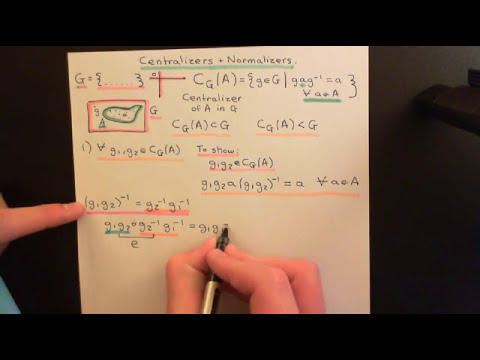 Centralizers + Normalizers.
G = { ...... }
C_G(A) = {g∈G | gag⁻¹ = a ∀ a∈A }
g
A
G
Centralizer of A in G
C_G(A) ⊂ G
C_G(A) < G
1) ∀ g₁, g₂ ∈ C_G(A)
To show:
g₁g₂ ∈ C_G(A)
g₁g₂ a (g₁g₂)⁻¹ = a ∀ a∈A
(g₁g₂)⁻¹ = g₂⁻¹ g₁⁻¹
g₁g₂ g₂⁻¹ g₁⁻¹ = g₁g
e